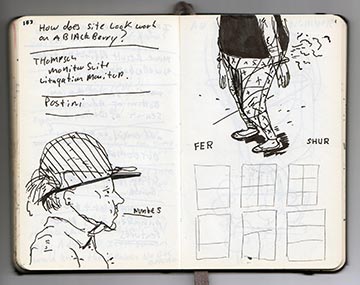 183
How does site look work
on a Blackberry?
Thompson
monitor suite
Litigation Monitor.
Postini
FER SHUR